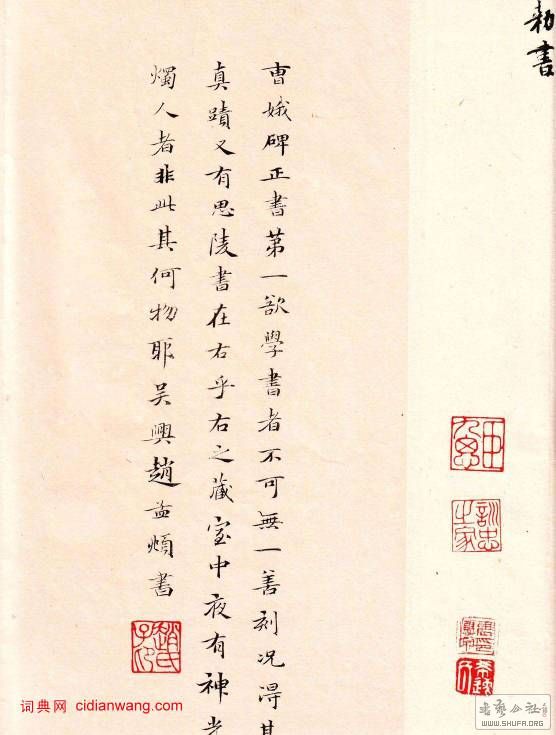 勑書
曹娥碑正書第一欲學書者不可無一善刻况得其
真蹟又有思陵書在右乎右之藏室中夜有神光
燭人者非此其何物耶吴興趙孟頫書
趙氏子印
訓忠之家
词典网 cidianwang.com
WWW.SHUFA.ORG